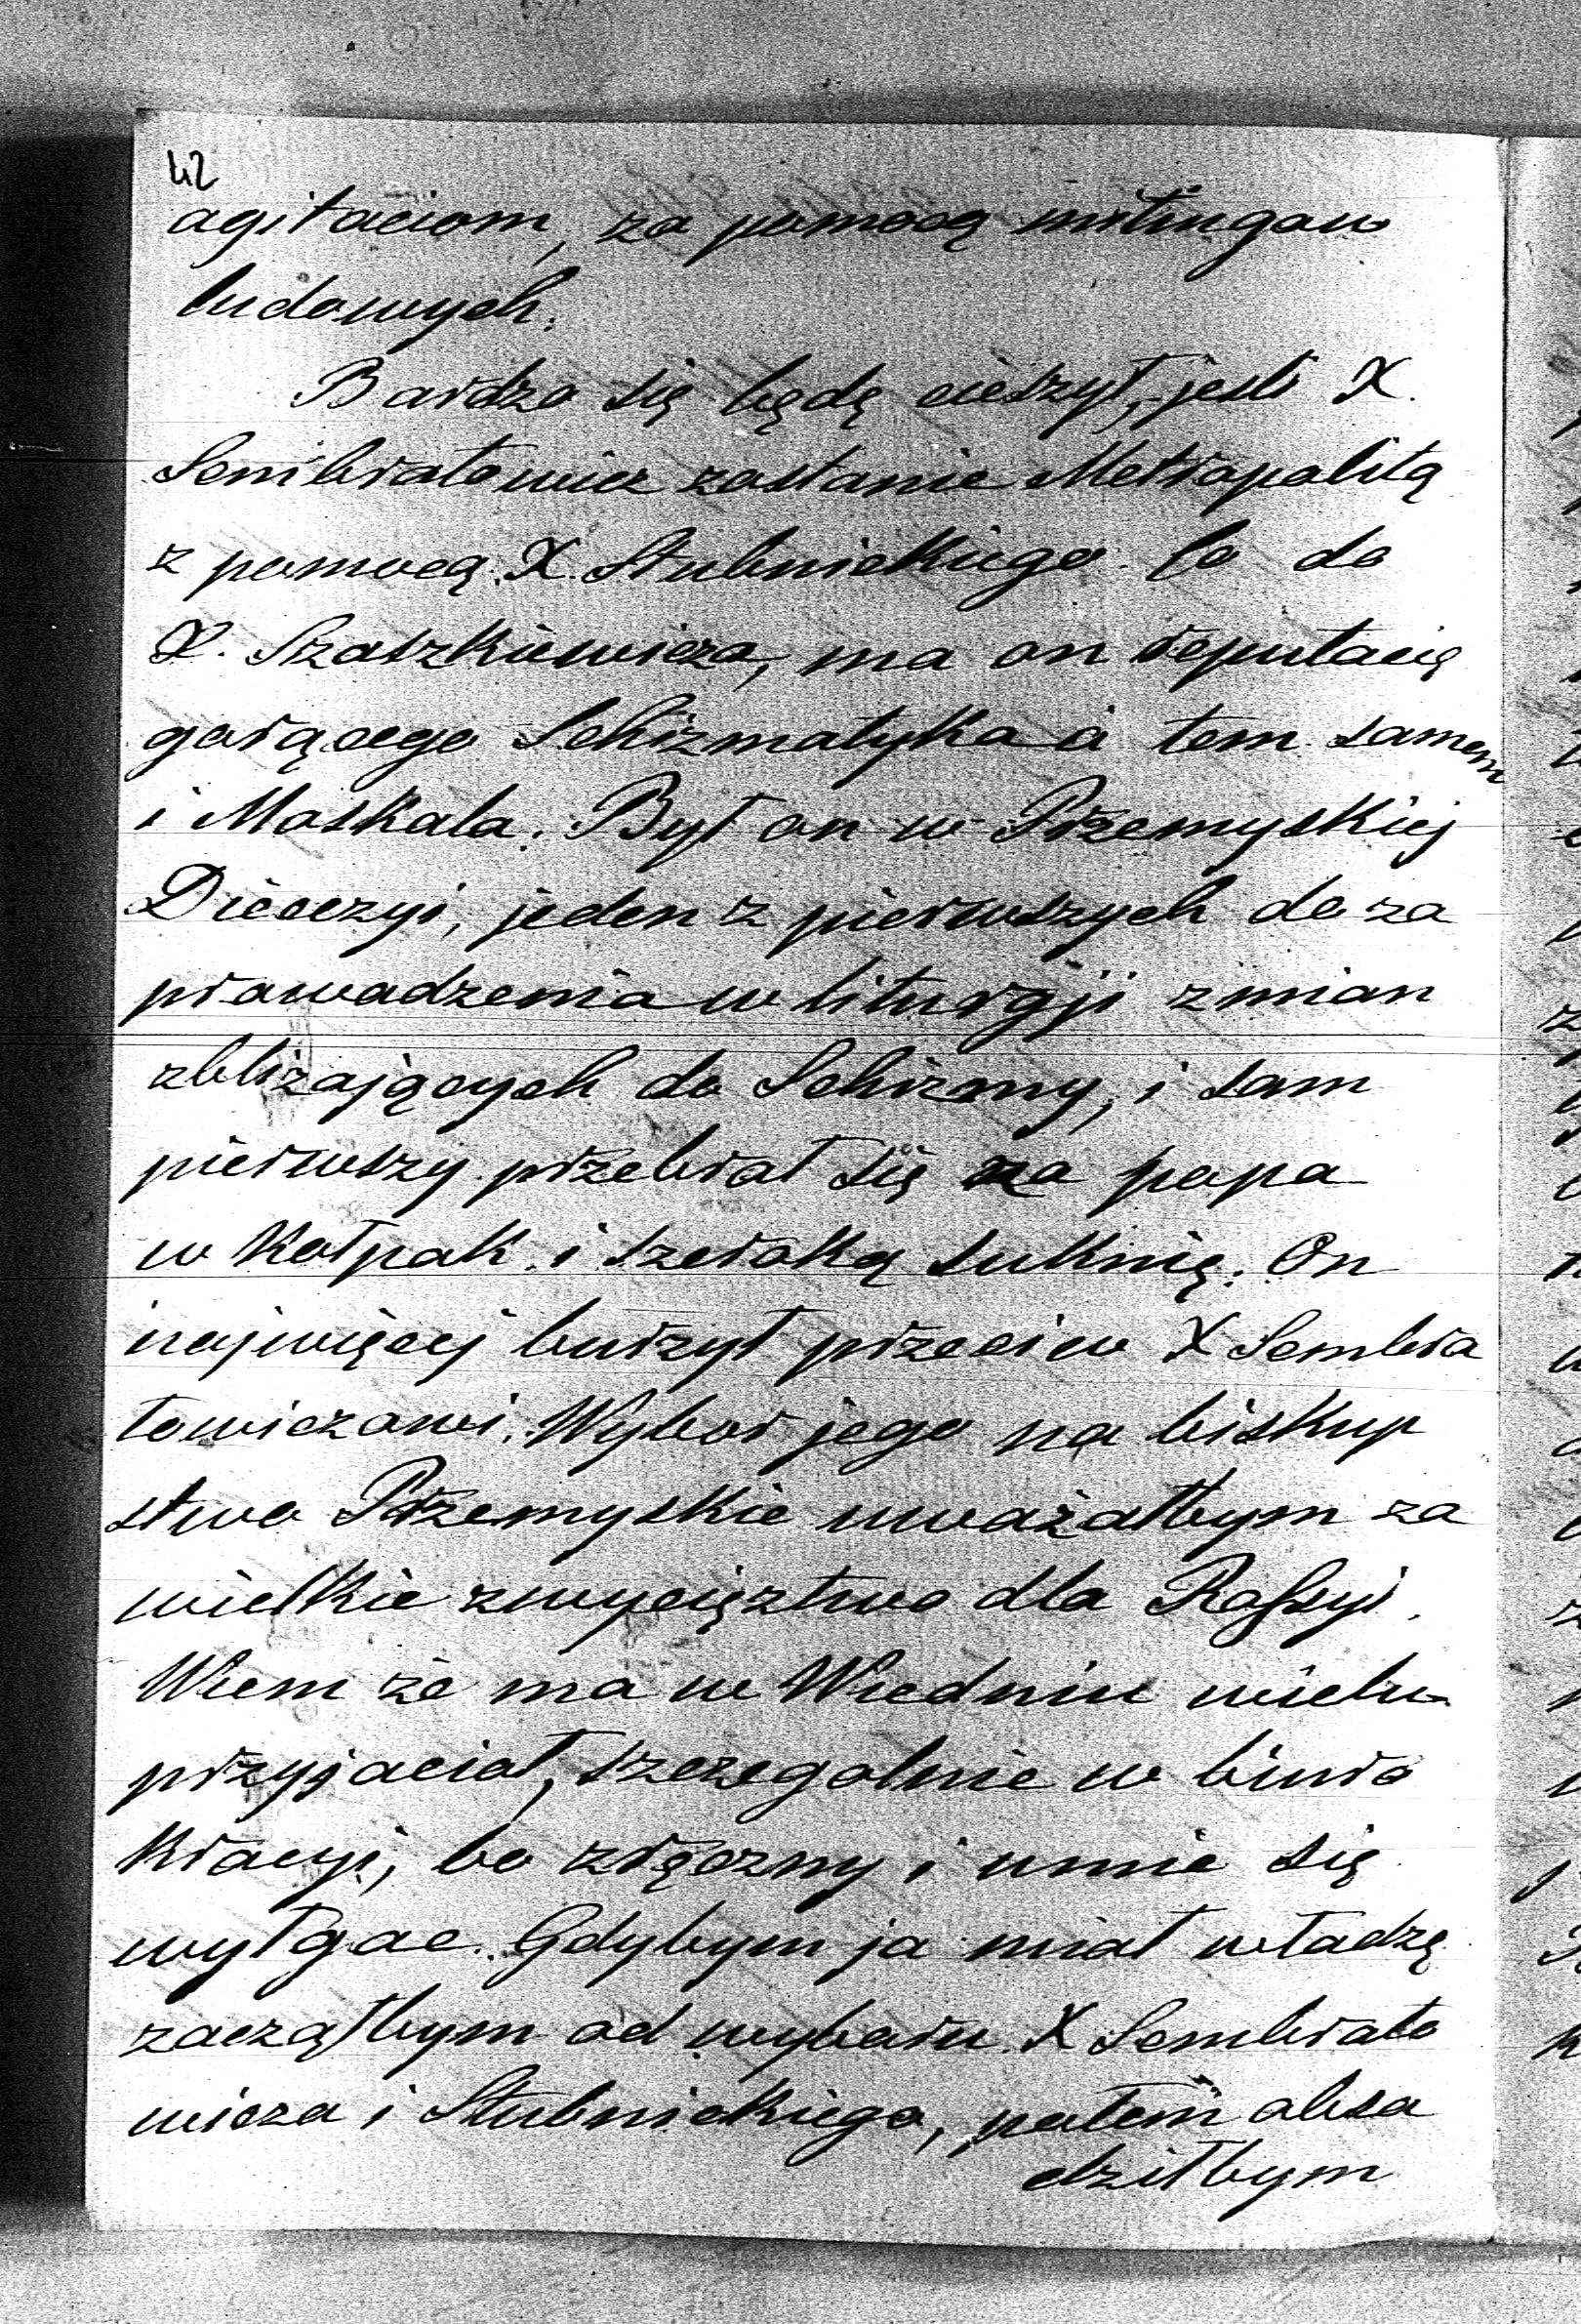 42
agitaciom, za pomocą mitingow
ludowych.
Bardzo się będę cieszył, jesli X.
Sembratowicz zostanie Metropolitą
z pomocą X. Stubnickiego. Co do
X. Szaszkiewicza, ma on reputacię
gorącego Schizmatyka a tem samem
i Moskala. Był on w Przemyskiej
Diecezyi, jeden z pierwszych do za
prowadzenia w liturgji zmian
zbliżających do Schizmy, i sam
pierwszy przebrał się za popa
w Kołpak i szeroką suknię. On
najwięcej burzył przeciw X Sembra
towiczowi. Wybor jego na biskup
stwo Przemyskie uważałbym za
wielkie zwycięztwo dla Rossyi.
Wiem że ma w Wiedniu wielu
przyjaciół, szczegolnie w biuro
kracyi, bo zręczny i umie się
wyłgac. Gdybym ja miał władzę
zacząłbym od wyboru X Sembrato
wicza i Stubnickiego, potem obsa
dziłbym